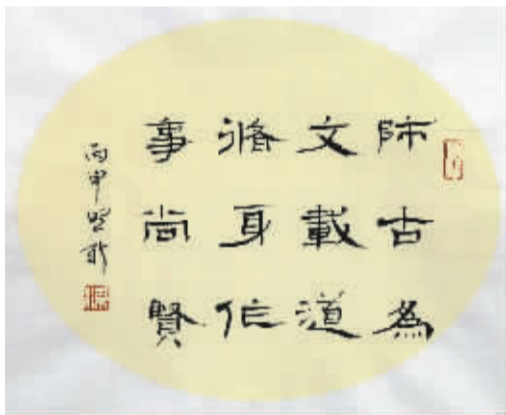 師古為
文載道
脩身作
事尚賢
丙申